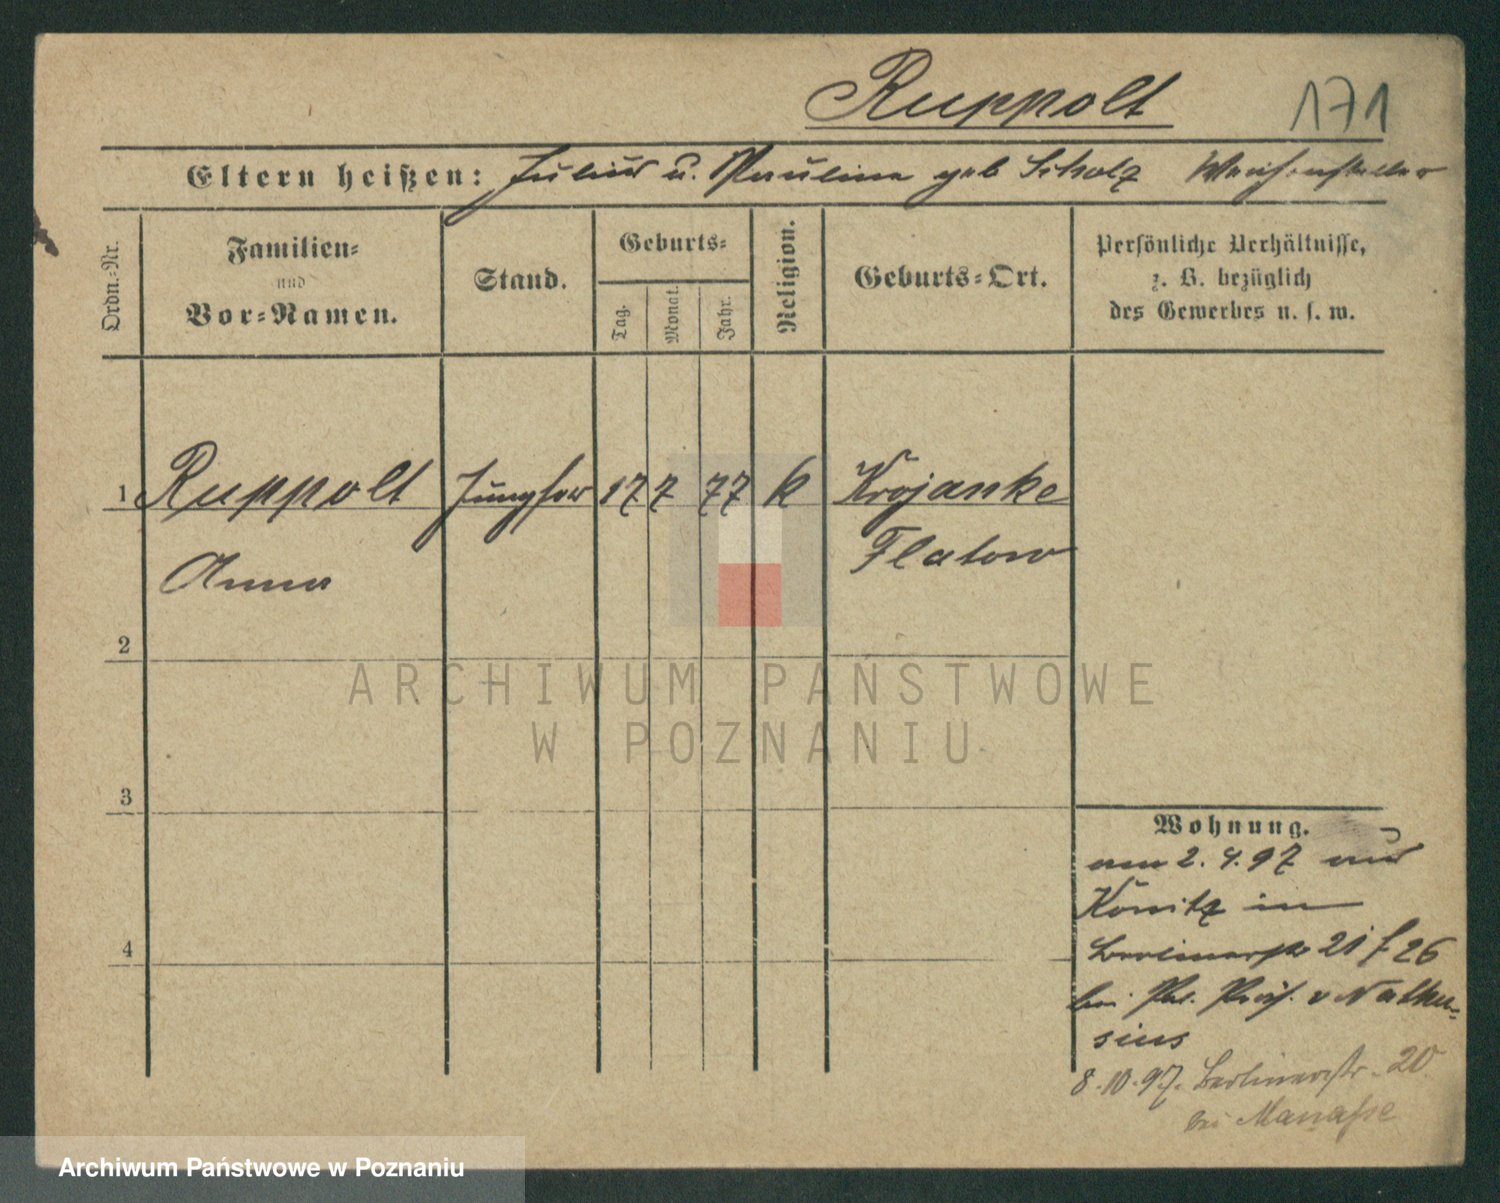 Ruppolt 171
Eltern heißen: Julius u. Pauline geb Scholz Weichensteller
Ordn.=Nr.
Familien=
und
Vor=Namen.
Stand.
Geburts=
Tag.
Monat.
Jahr.
Religion.
Geburts=Ort.
Persönliche Verhältnisse,
z. B. bezüglich
des Gewerbes u. s. w.
1 Ruppolt Jungfer 17 7 77 k Krojanke
Anna Flatow
2
3
4
Wohnung.
am 2. 4. 97 aus
Konitz in
Berlinerstr 21 f 26
bei v Nathu-
sius
8.10.97. Berlinerstr. 20
bei Manasse
ARCHIWUM PAŃSTWOWE
W POZNANIU
Archiwum Państwowe w Poznaniu